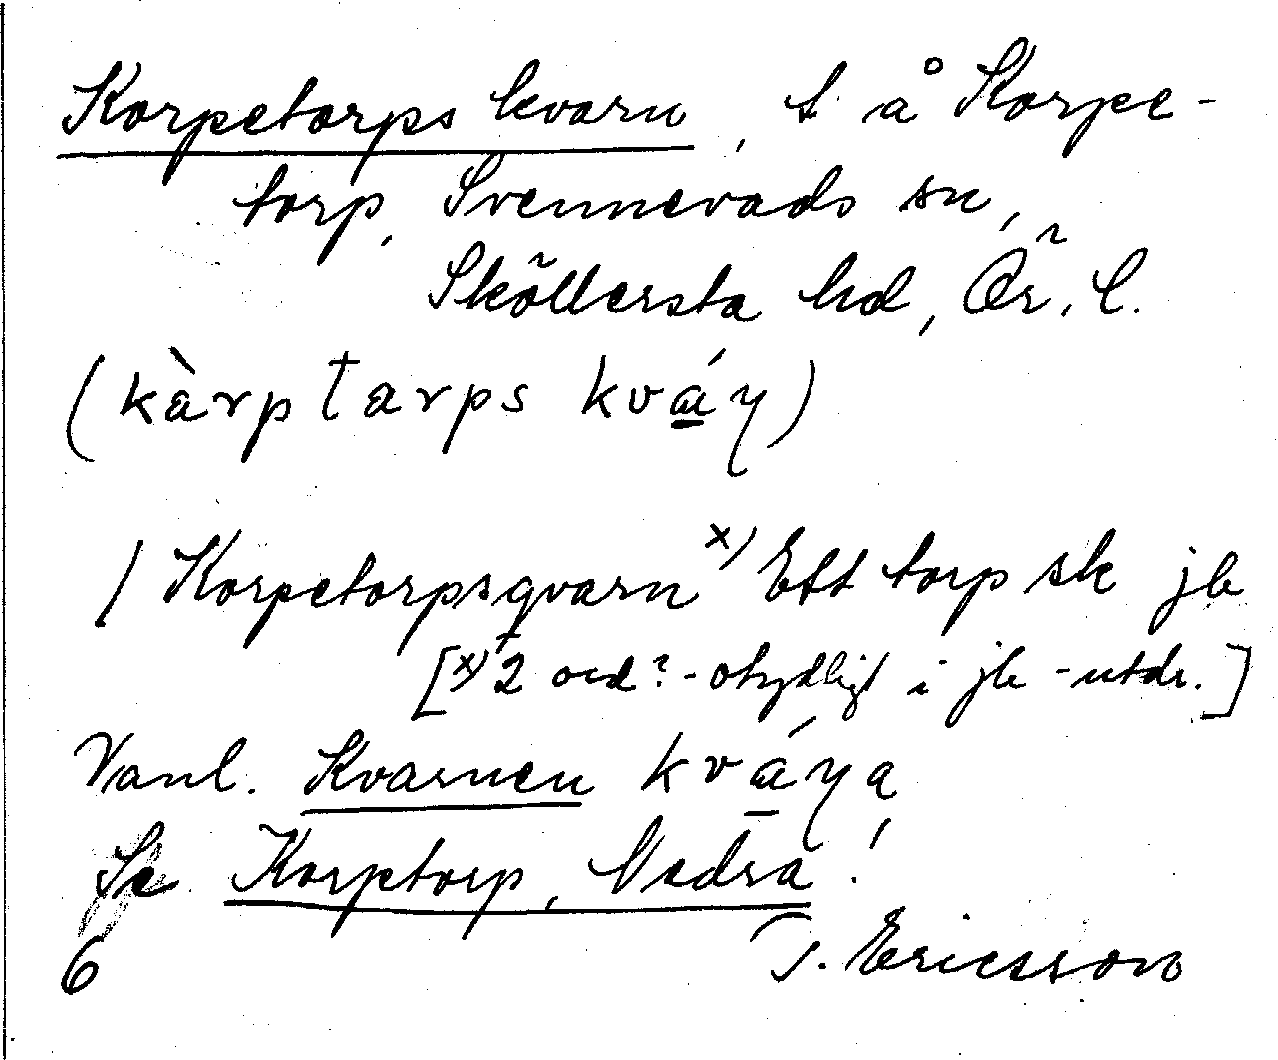 Korpetorps kvarn, t. å Korpe-
torp, Svennevads sn,
Sköllersta hd, Ör. l.
(kàrptarps kváɳ)
/ Korpetorpsqvarn x) Ett torp sk jb
[x) 2 ord? - otydligt i jb -utdr.]
Vanl. Kvarnen kváɳa
Se Korptorp, Nedra.
6 J. Ericsson